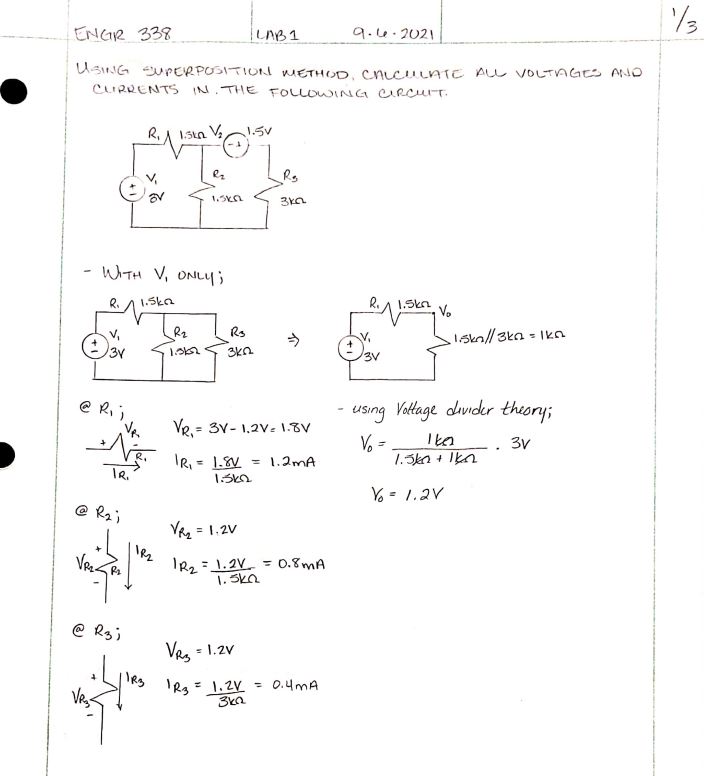 ENGR 338 LAB 1 9.6.2021 1/3
USING SUPERPOSITION METHOD, CALCULATE ALL VOLTAGES AND
CURRENTS IN THE FOLLOWING CIRCUIT.
R₁ 1.5kΩ V₂ 1.5V
- +
V₁ R₂ R₃
+ -
3V 1.5kΩ 3kΩ
- WITH V₁ ONLY;
R₁ 1.5kΩ
V₁ R₂ R₃
+ -
3V 1.5kΩ 3kΩ
⇒
R₁ 1.5kΩ V₀
V₁ 1.5kΩ//3kΩ = 1kΩ
+ -
3V
@ R₁;
+ VR₁ -
R₁
IR₁
VR₁ = 3V - 1.2V = 1.8V
IR₁ = 1.8V / 1.5kΩ = 1.2mA
- using Voltage divider theory;
V₀ = 1kΩ / 1.5kΩ + 1kΩ . 3V
V₀ = 1.2V
@ R₂;
+
VR₂ R₂ IR₂
-
VR₂ = 1.2V
IR₂ = 1.2V / 1.5kΩ = 0.8mA
@ R₃;
+
VR₃ IR₃
-
VR₃ = 1.2V
IR₃ = 1.2V / 3kΩ = 0.4mA